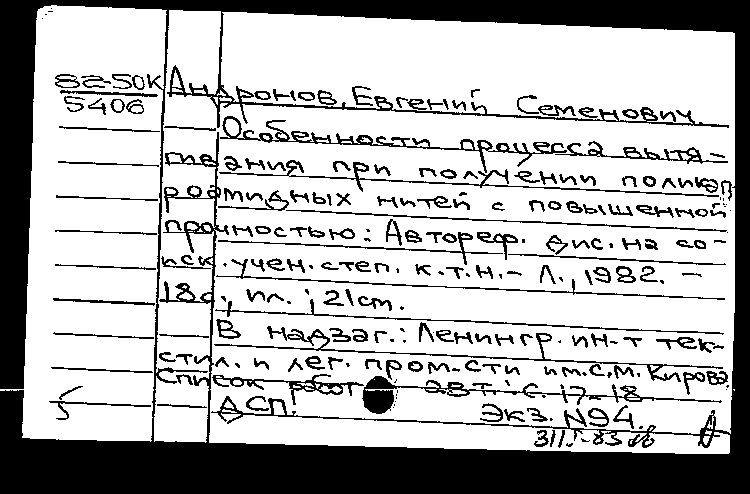 82-50К Андронов, Евгений Семенович.
5406
Особенности процесса вытя-
гивания при получении поликап
роамидных нитей с повышенной
прочностью: Автореф. дис. на со-
иск. учен. степ. к.т.н. - Л., 1982. -
18с., ил.; 21см.
В надзаг.: Ленингр. ин-т тек-
стил. и лег. пром-сти им. С.М. Кирова
Список работ авт.: с. 17-18
ДСП. Экз. N94.
5